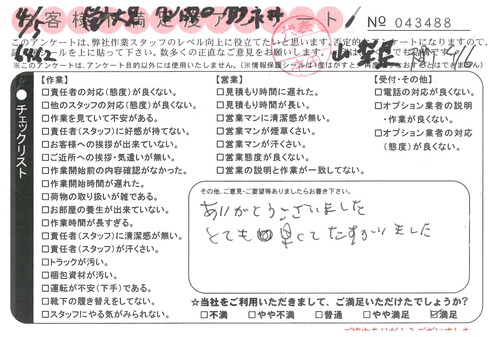 お客様 満足度アンケート
No 043488
このアンケートは、弊社作業スタッフのレベル向上に役立てたいと思います。
【作業】
□責任者の対応(態度)が良くない。
□他のスタッフの対応(態度)が良くない。
□作業を見ていて不安がある。
□責任者(スタッフ)に好感が持てない。
□お客様への挨拶が出来ていない。
□ご近所への挨拶・気遣いが無い。
□作業開始前の内容確認がなかった。
□作業開始時間が遅れた。
□荷物の取り扱いが雑である。
□お部屋の養生が出来ていない。
□作業時間が長すぎる。
□責任者(スタッフ)に清潔感が無い。
□責任者(スタッフ)が汗くさい。
□トラックが汚い。
□梱包資材が汚い。
□運転が不安(下手)である。
□靴下の履き替えをしてない。
□スタッフにやる気がみられない。
【営業】
□見積もり時間に遅れた。
□見積もり時間が長い。
□営業マンに清潔感が無い。
□営業マンが煙草くさい。
□営業マンが汗くさい。
□営業態度が良くない。
□営業の説明と作業が一致してない。
【受付・その他】
□電話の対応が良くない。
□オプション業者の説明・作業が良くない。
□オプション業者の対応(態度)が良くない。
チェックリスト
その他、ご意見・ご要望等ありましたらお書き下さい。
ありがとうございました
とても早くてたすかりました
☆当社をご利用いただきまして、ご満足いただけたでしょうか?
□不満 □やや不満 □普通 □やや満足 ☑満足